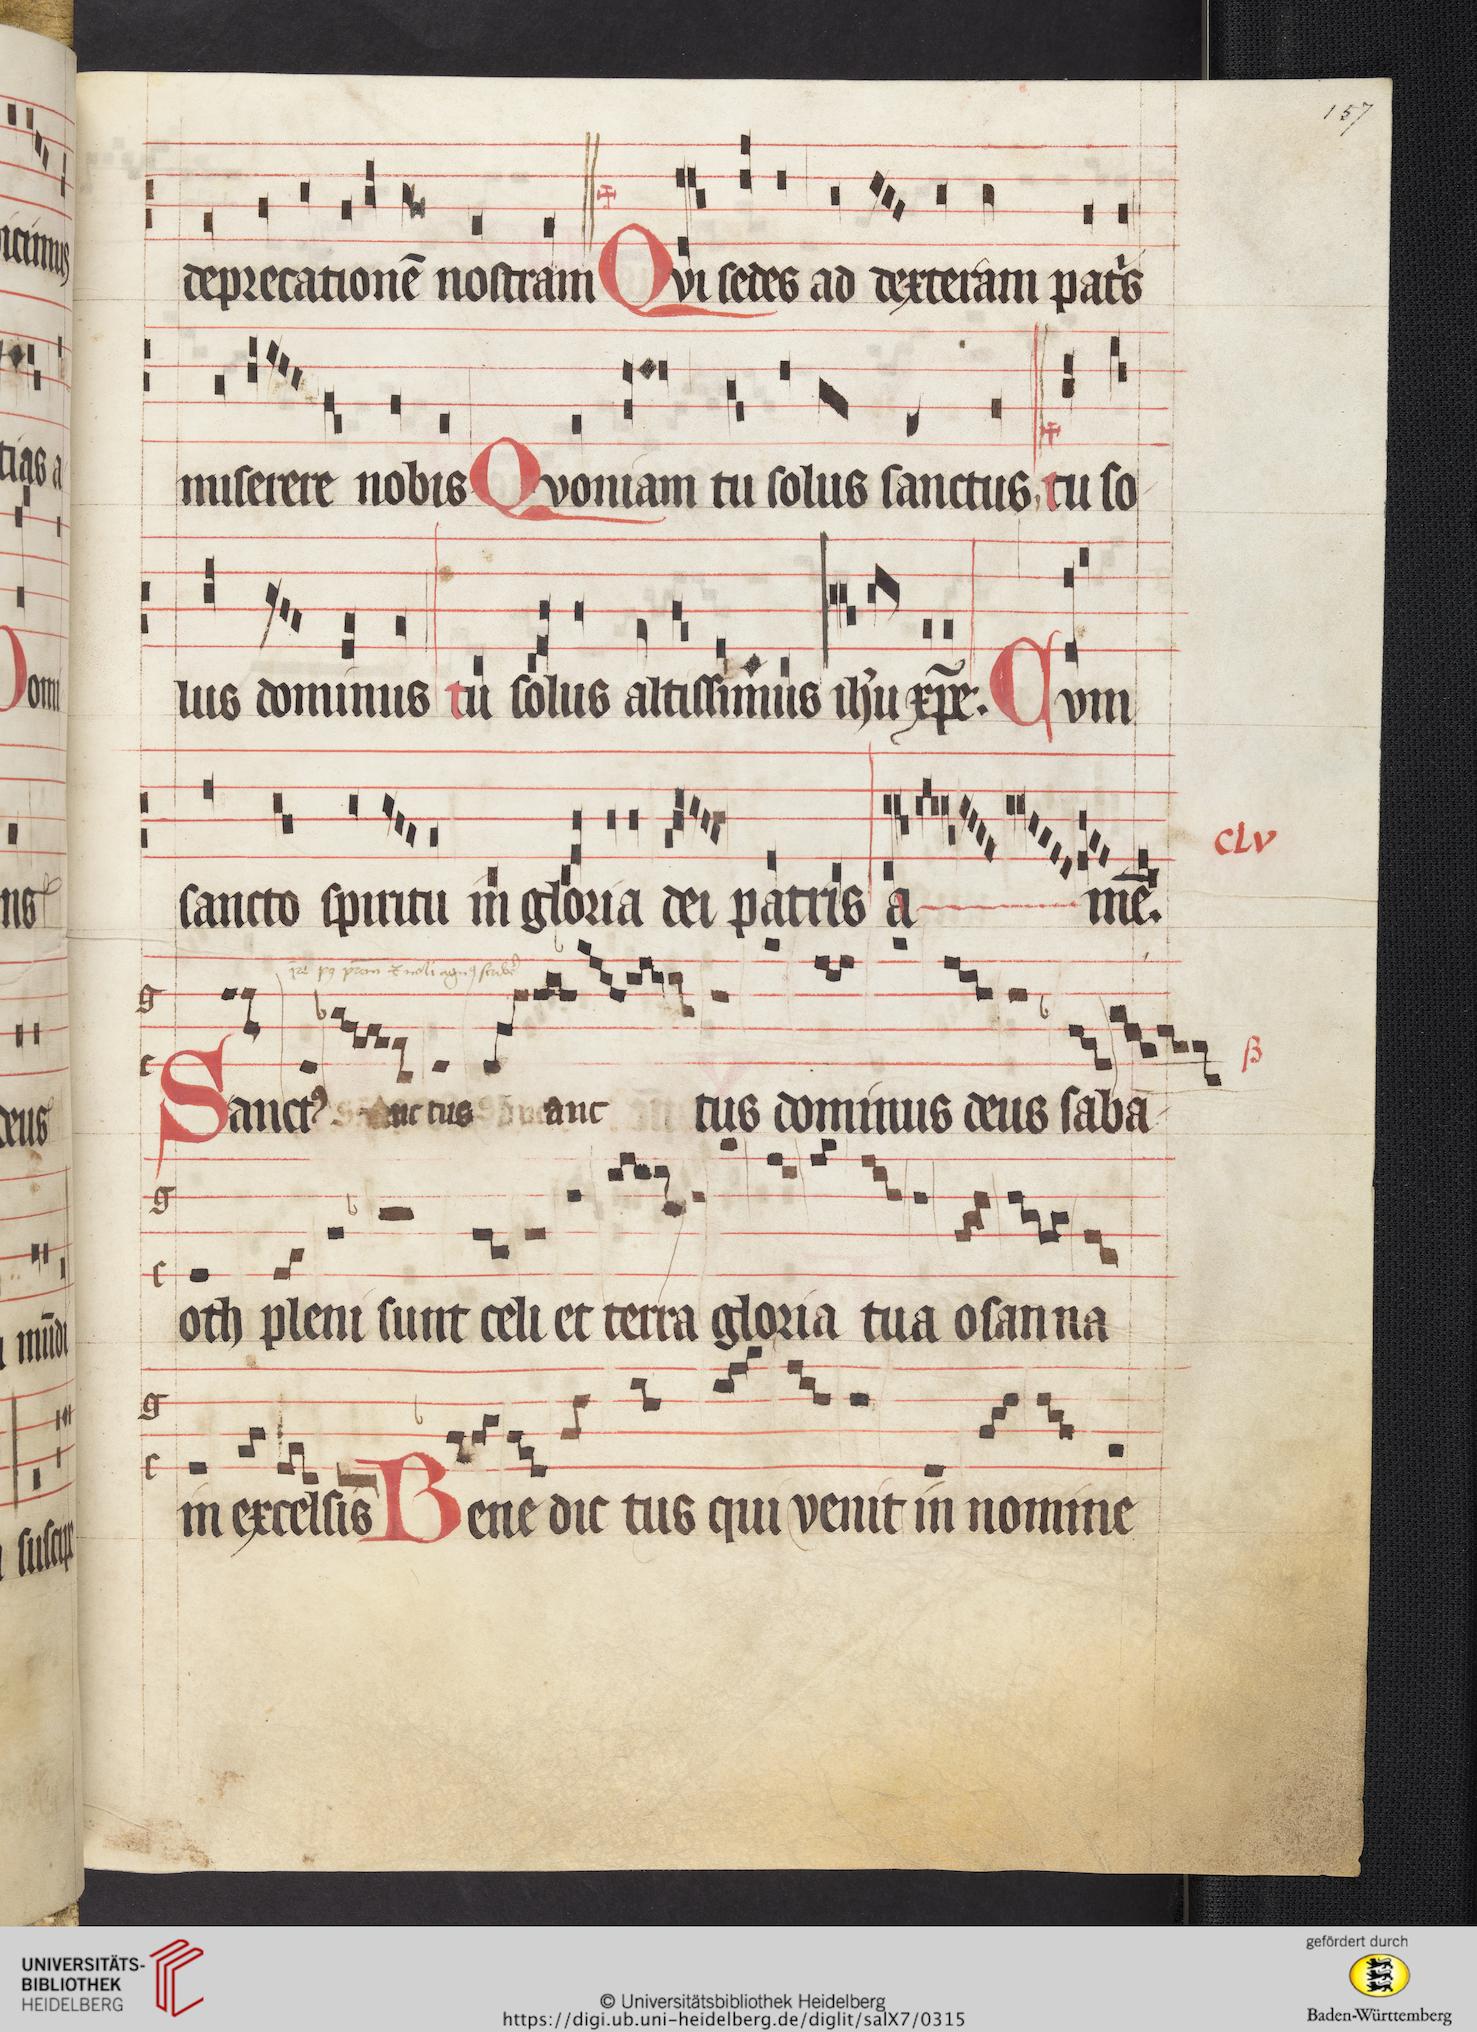 157
deprecationē nostram Qvi sedes ad dexteram patͥs
miserere nobis Qvoniam tu solus sanctus tu so
lus dominus tu solus altissimus ihu xp̄e. Cvm
sancto spiritu in gloria dei patris a mē.
CLV
g
c Sanctꝰ anctus anc tus dominus deus saba
g
c
oth pleni sunt celi et terra gloria tua osanna
g
c
in excelsis Bene dic tus qui venit in nomine
icimus
tias a
Domi
ns
deus
mūdi
suscipe
UNIVERSITÄTS-
BIBLIOTHEK
HEIDELBERG
© Universitätsbibliothek Heidelberg
https://digi.ub.uni-heidelberg.de/diglit/salX7/0315
gefördert durch
Baden-Württemberg